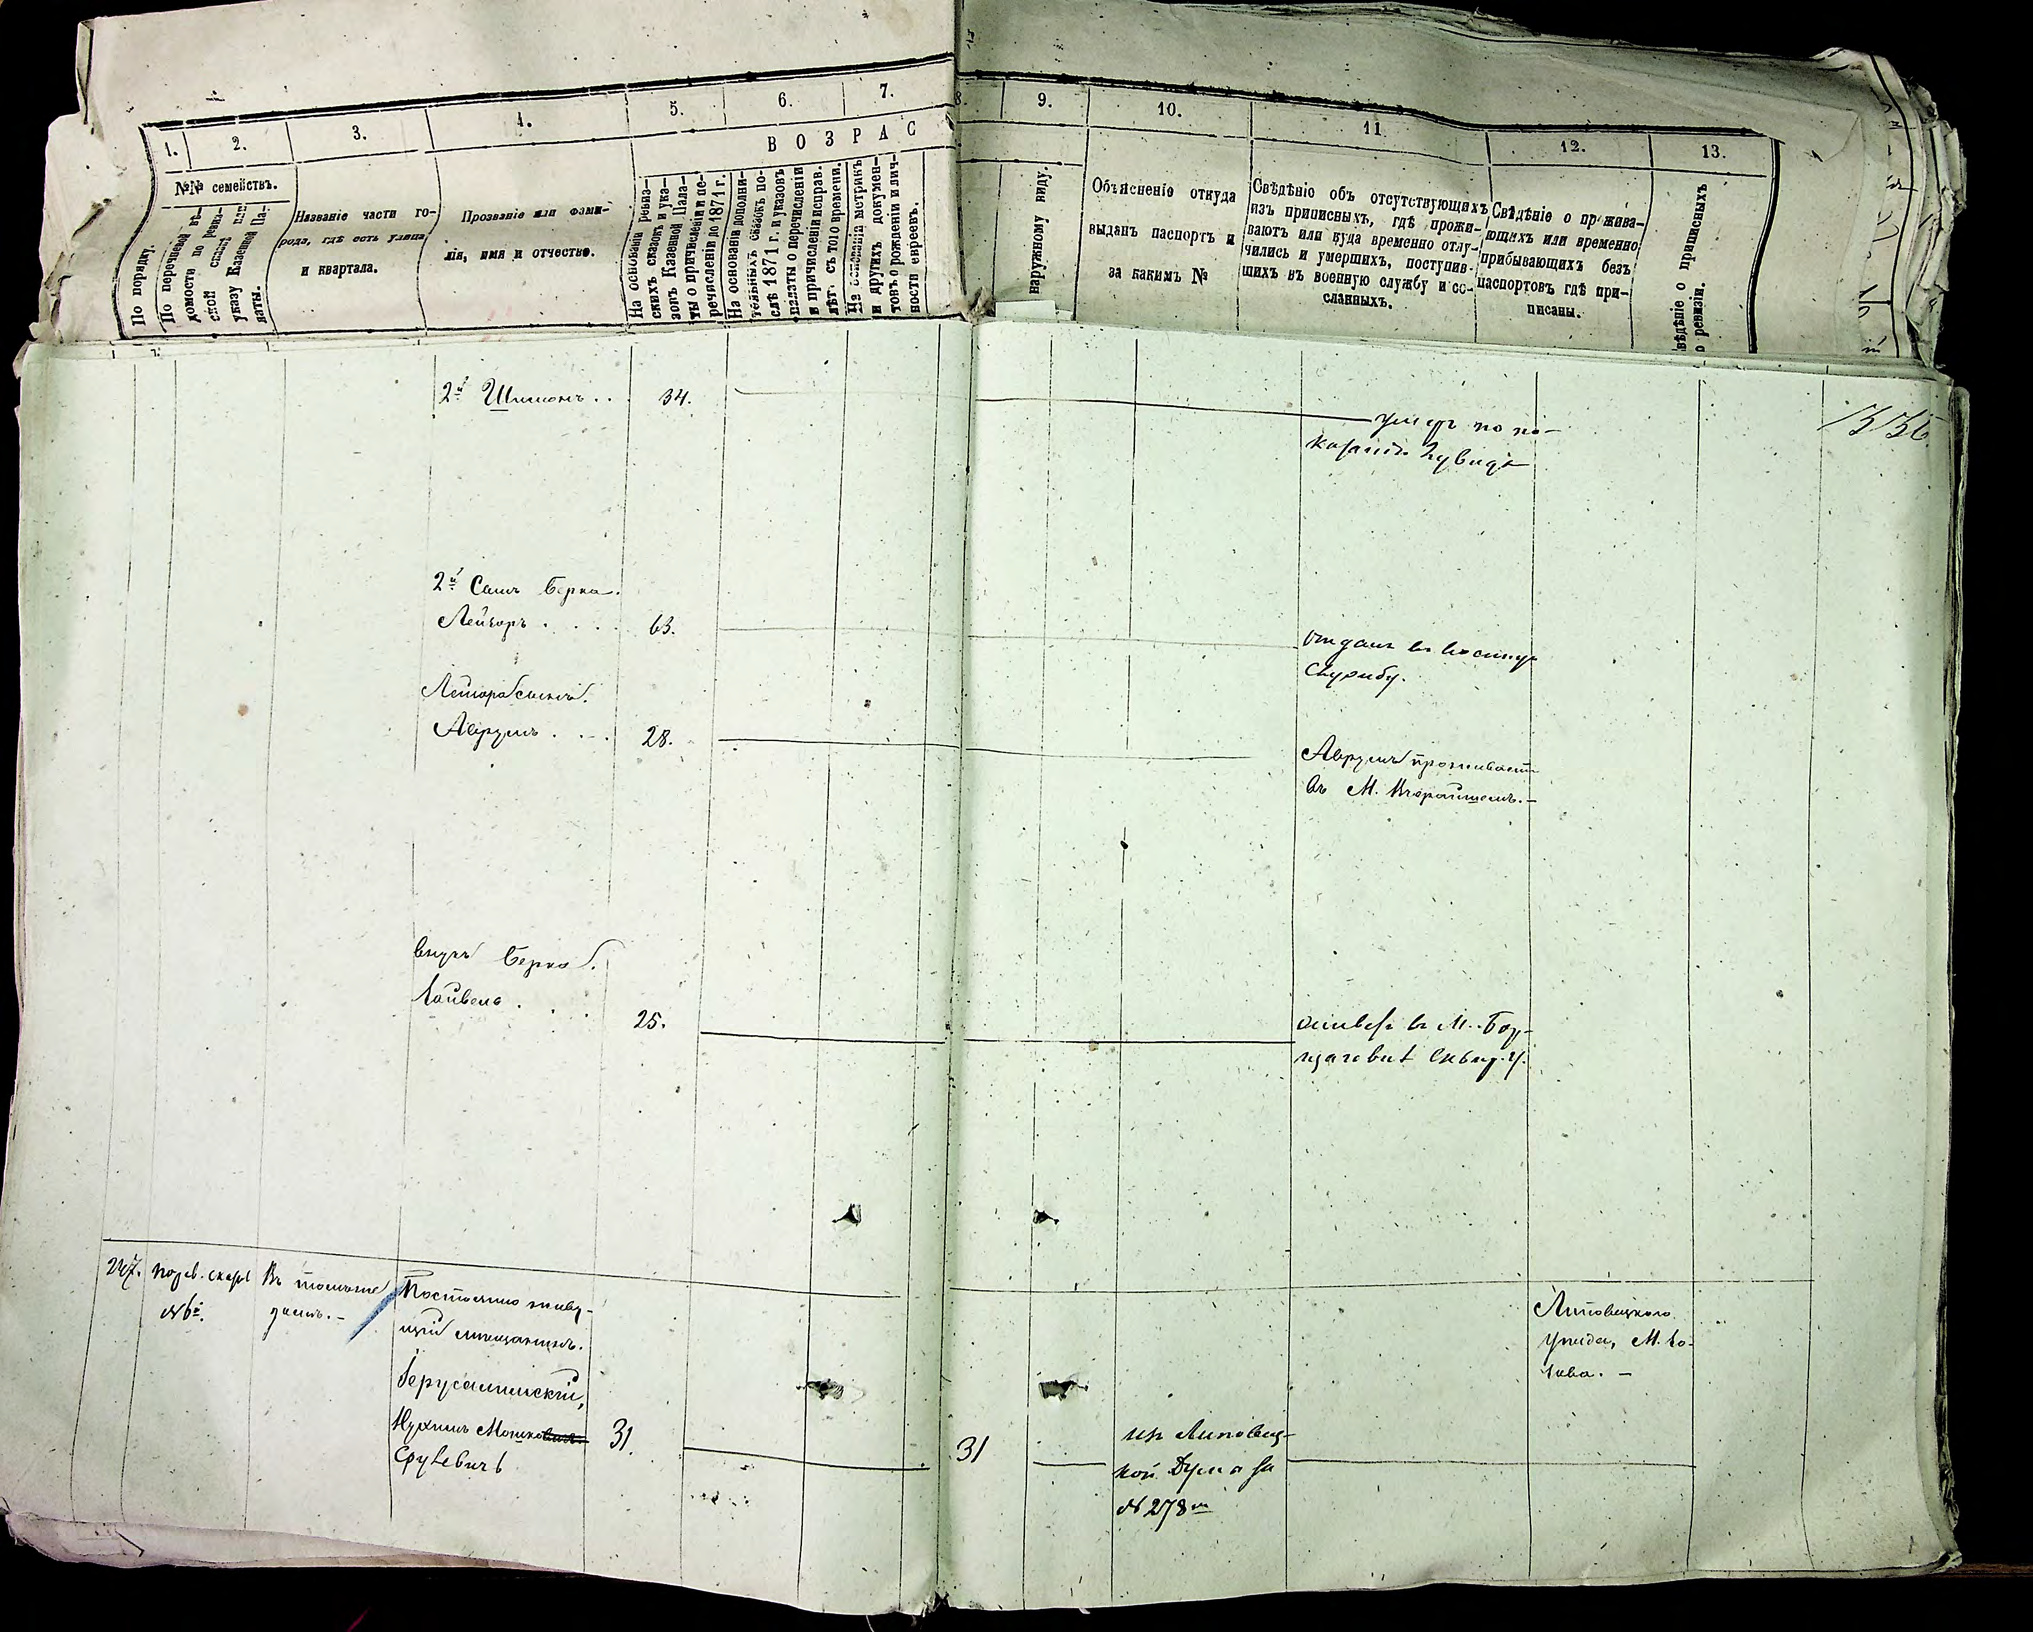 1.
2.
3.
4.
5.
6.
7.
8.
9.
10.
11.
12.
13.
ВОЗРАС
№№ семействъ.
По порядку.
По перечневой вѣ-
домости по ревиз-
ской сказкѣ или
указу Казенной Па-
латы.
Названіе части го-
рода, гдѣ есть улица
и квартала.
Прозваніе или фами-
лія, имя и отчество.
На основаніи ревиз-
скихъ сказокъ и ука-
зовъ Казенной Пала-
ты о причисленіи и пе-
речисленіи до 1871 г.
На основаніи дополни-
тельныхъ сказокъ по-
слѣ 1871 г. и указовъ
палаты о перечисленіи
и причисленіи исправ.
лѣт. съ того времени.
На основаніи метрикъ
и другихъ докумен-
товъ о рожденіи и лич-
ности евреевъ.
наружному виду.
Объясненіе откуда
выданъ паспортъ и
за какимъ №
Свѣдѣніе объ отсутствующихъ
изъ приписныхъ, гдѣ прожи-
ваютъ или куда временно отлу-
чились и умершихъ, поступив-
шихъ въ военную службу и со-
сланныхъ.
Свѣдѣніе о прожива-
ющихъ или временно
прибывающихъ безъ
паспортовъ гдѣ при-
писаны.
вѣдѣніе о приписныхъ
о ревизіи.
2й Шимонъ . . 34.
умеръ по по-
казанію
336
2й Сынъ Берка.
Лейзоръ . . . . 63.
отданъ въ военную
службу.
Лейзора сынъ.
Аврумъ . . . . 28.
Аврумъ проживаетъ
въ М.
внукъ Берка.
Лейвель . . . . 25.
въ М.
247. по рев. сказкѣ
№ 6й.
Въ томъ же
домѣ. –
Постоянно живу-
щій мещанинъ.
Іерусалимскій,
Нухимъ Мошко
Срулевичъ
31.
31
изъ Липовец-
кой Думы за
№ 278м
Липовецкого
уезда, М.